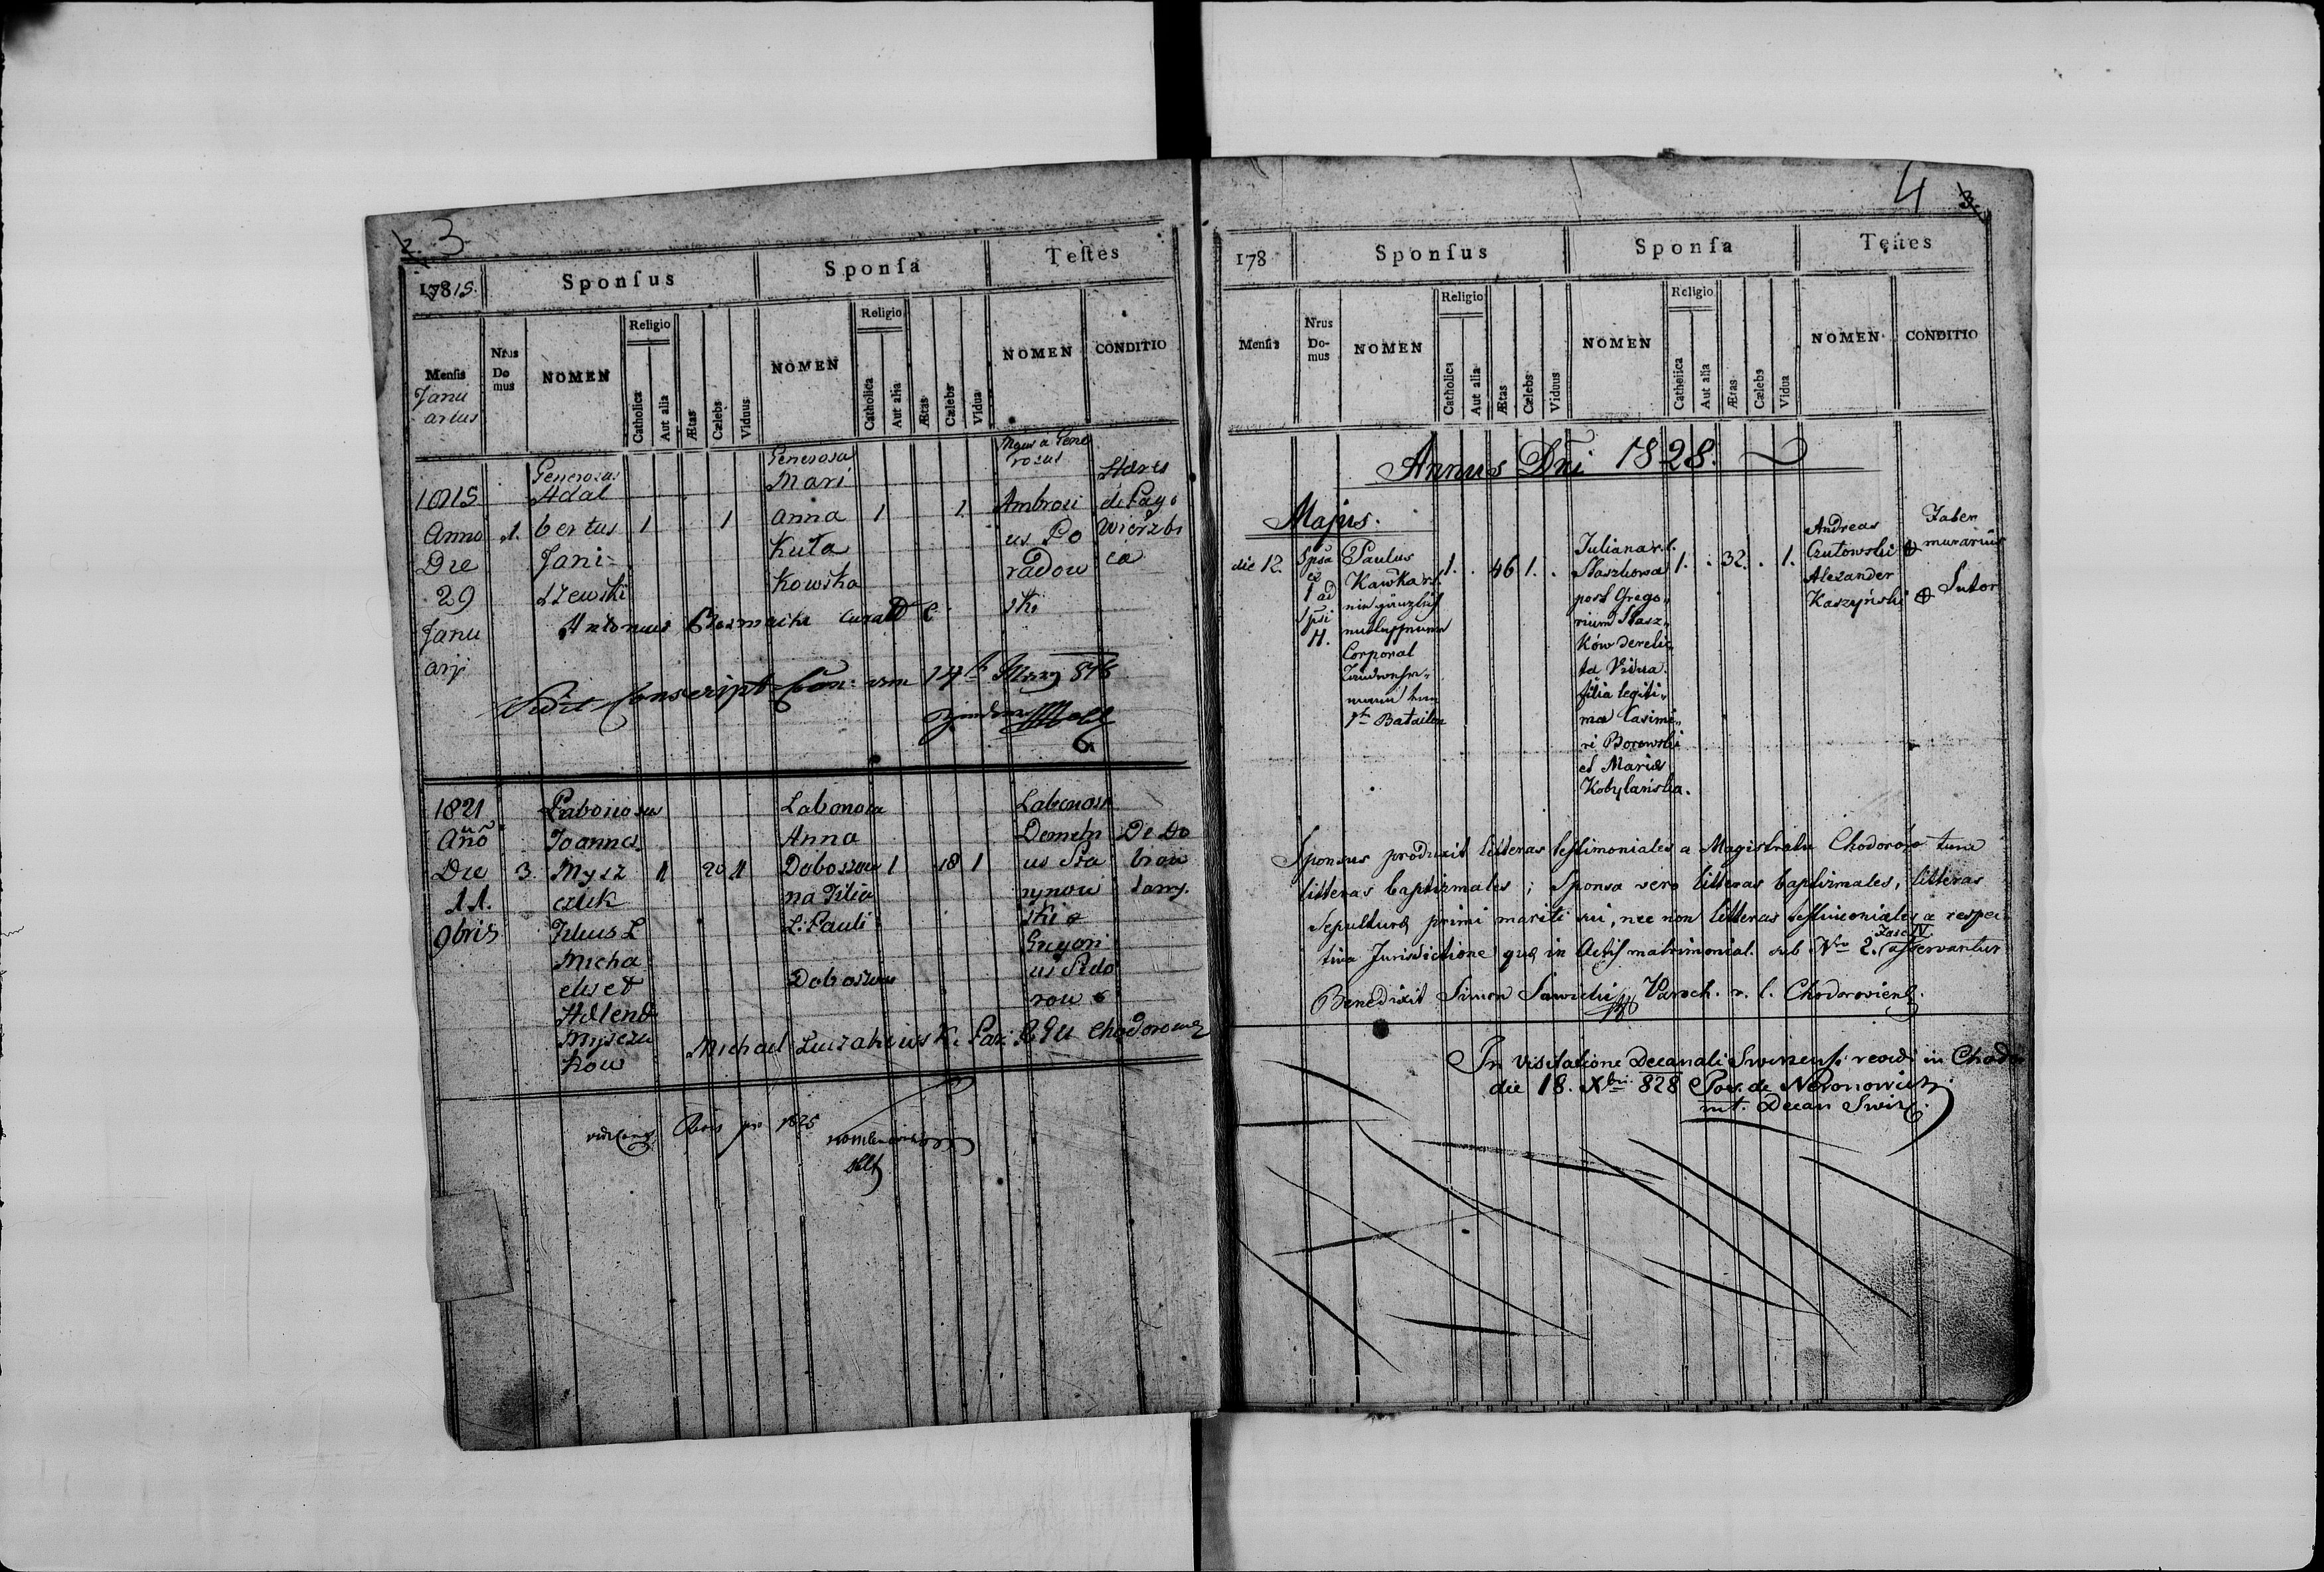 2. 3
17815.
Sponſus
Sponſa
Teſtes
Menſis
Janu
arius
Nrus
Do
mus
NOMEN
Religio
Catholica
Aut alia
Ætas
Cælebs
Viduus
NOMEN
Religio
Catholica
Aut alia
Ætas
Cælebs
Vidua
NOMEN
CONDITIO
1815
Anno
Die
29
Janu
arij
1.
Generosus
Adal
bertus
Jani
szewski
1
1
Generosa
Mari
anna
Kuta
kowska
1
1
rosus
Ambrosi
us Po
radow
ski
Hæres
de Pago
Wierzbi
ca
Antonius
Vidit Conscript
1821
Año
Die
11.
9bris
3.
Laboriosus
Joannes
Mysz
czuk
Filius L
Micha
elis et
Helenæ
Myszczu
kow
1
20
1
Laboriosa
Anna
Doboszow
na Filia
L: Pauli
Doboszow
1
18
1
Laboriosi
Demetri
us Sta
rynow
ski
Gregori
us Sido
row
De Do
brow
lany.
Michael
pro 1825
4 3.
178
Sponſus
Sponſa
Teſtes
Menſis
Nrus
Do-
mus
NOMEN
Religio
Catholica
Aut alia
Ætas
Cælebs
Viduus
NOMEN
Religio
Catholica
Aut alia
Ætas
Cælebs
Vidua
NOMEN
CONDITIO
Annus Dni 1828.
Majus.
die 12.
Spsa
ex
1 ad
Spsi
4.
Paulus
Kawka r.l.
Corporal
1t Batailon
1. . 46 1. .
Juliana r.l.
Staszkowa
post Grego-
rium Stasz-
ków derelic-
ta Vidua.
filia legiti-
ma Casimi-
ri Borowski
et Mariæ
Kobylańska.
1. . 32. . 1.
Andreas
Alexander
Kaszyński
Faber
murarius
Sutor
Sponsus produxit litteras testimoniales a Magistratu Chodorów tum
litteras baptismales; Sponsa vero litteras baptismales, litteras
Sepulturæ primi mariti sui, nec non litteras testimoniales a respec-
tiva Jurisdictione quæ in Actis matrimonial. sub Nro 2. Fasc IV. asservantur
Benedixit Simon Sawicki Paroch. r. l. Chodoroviens.
In visitatione Decanali Swirensi revidi in Chodor
die 18. Xbris 828
Decan Swirz.